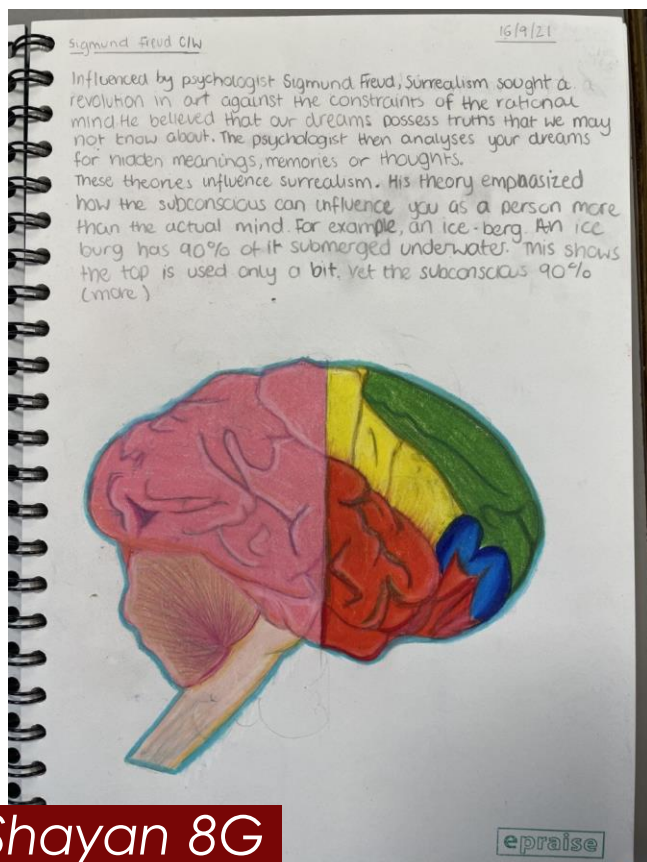 Sigmund Freud C/W
16/9/21
Influenced by psychologist Sigmund Freud, Surrealism sought a a
revolution in art against the constraints of the rational
mind. He believed that our dreams possess truths that we may
not know about. The psychologist then analyses your dreams
for hidden meanings, memories or thoughts.
These theories influence surrealism. His theory emphasized
how the subconscious can influence you as a person more
than the actual mind. For example, an ice-berg. An ice
burg has 90% of it submerged underwater. This shows
the top is used only a bit. Yet the subconscious 90%
(more)
Shayan 8G
epraise